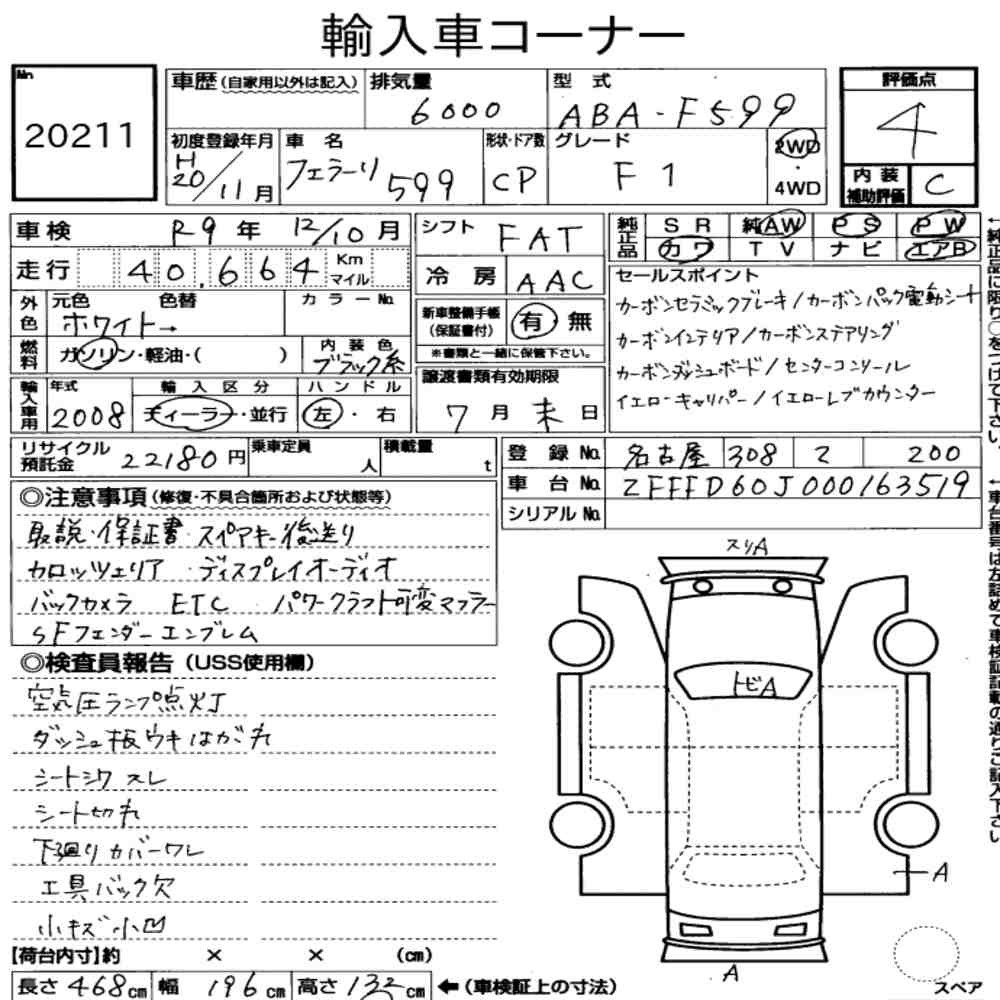 輸入車コーナー
No. 20211
車歴 (自家用以外は記入)
排気量 6000
型式 ABA-F599
評価点 4
内装補助評価 C
初度登録年月 H20/11月
車名 フェラーリ 599
形状・ドア数 CP
グレード F1
2WD・4WD
車検 R9年 12/10月
走行 40,664 Km マイル
外色 元色 ホワイト→ 色替 カラーNo.
燃料 ガソリン・軽油・( )
内装色 ブラック系
輸入車用 年式 2008
輸入区分 ディーラー・並行
ハンドル 左・右
シフト FAT
冷房 AAC
新車整備手帳(保証書付) 有・無
※書類と一緒に保管下さい。
譲渡書類有効期限 7月末日
純正品 SR 純AW PS PW
カワ TV ナビ エアB
セールスポイント
カーボンセラミックブレーキ/カーボンバック電動シート
カーボンインテリア/カーボンステアリング
カーボンダッシュボード/センターコンソール
イエローキャリパー/イエローレブカウンター
←純正品に限り○をつけて下さい。
リサイクル預託金 22180円
乗車定員 人
積載量 t
登録No. 名古屋 308 ウ 200
車台No. ZFFFD60J000163519
シリアルNo.
←車台番号は左詰めで車検証記載の通りご記入下さい。
◎注意事項(修復・不具合箇所および状態等)
取説・保証書・スペアキー後送り
カロッツェリア・ディスプレイオーディオ
バックカメラ ETC パワークラフト可変マフラー
SFフェンダーエンブレム
◎検査員報告(USS使用欄)
空気圧ランプ点灯
ダッシュ板ウキはがれ
シートシワ スレ
シート切れ
下廻りカバーワレ
工具バック欠
小キズ小凹
スリA
トビA
A
A
スペア
【荷台内寸】約 × × (cm)
長さ468cm 幅196cm 高さ133cm ←(車検証上の寸法)